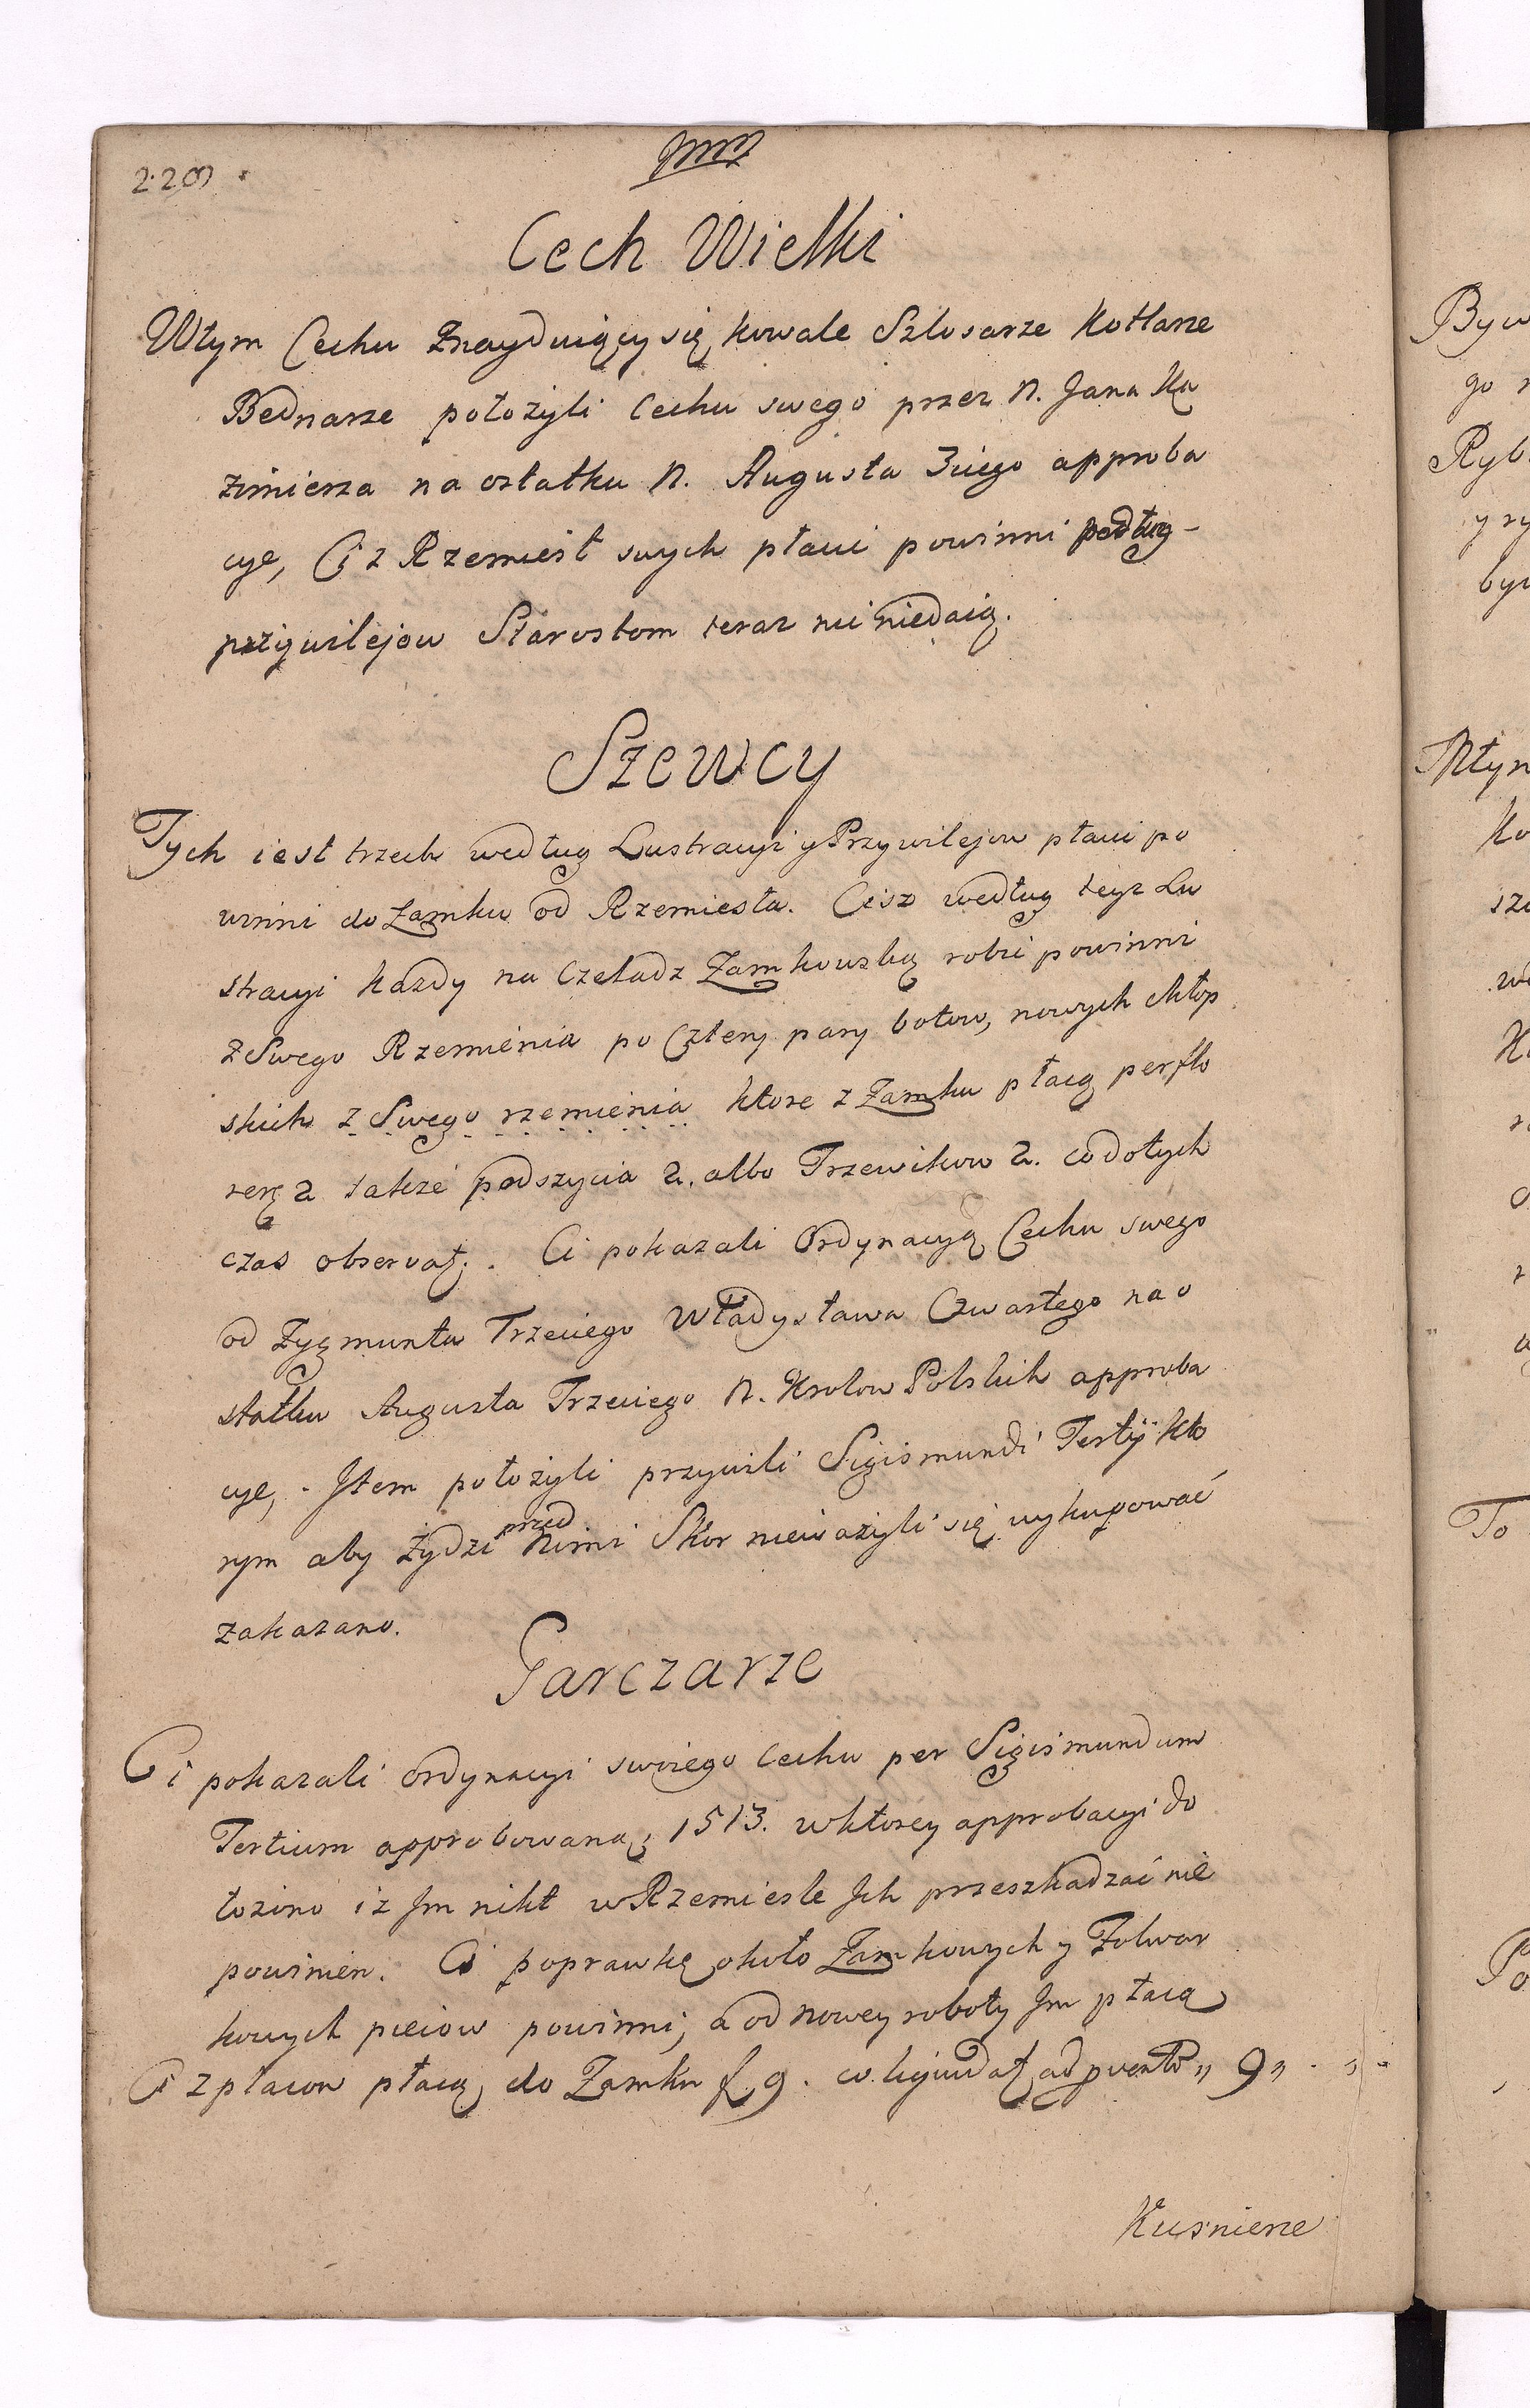 Cech Wielki
Wtym Cechu Znayduięcy się kowale Szlosarze Kotlarze
Bednarze położyli Cechu swego przez N. Jana Ka
zimierza na ostatku N. Augusta 3ciego approba
cye, Ci z Rzemiesł swych płacić powinni podług
przywilejow Starostom teraz nic niedaią.
Szewcy
Tych iest trzech według Lustracyi y Przywilejow płacić po
winni do Zamku od Rzemiesła. Cisz według teyz Lu
stracyi każdy na Czeladz Zamkowską robić powinni
z Swego Rzemienia po Cztery pary botow, nowych chłop
skich z Swego rzemienia ktore z Zamku płacą per flo
reņ 2 także podszycia 2. albo Trzewikow 2. co dotych
czas observat;. Ci pokazali Ordynacyą Cechu swego
od Zygmunta Trzeciego Władysława Czwartego na o
statku Augusta Trzeciego N. Krolow Polskich approba
cye, . Item położyli przywili Sigismundi Tertÿ kto
rym aby Żydzi przed Nimi Skor nieważyli się wykupować
zakazano.
Garczarze
Ci pokazali ordynacyi swoiego Cechu per Sigismundum
Tertium approbowaną; 1513. wktorey approbacyi do
łozono iz Jm nikt w Rzemiesle Jch przeszkadzać nie
powinien. Ci poprawkę około Zamkowych y Folwar
kowych pieców powinni; a od nowey roboty Jm płacą
Ci z placow płacą do Zamku f. 9. co liquidat; ad ,, 9 ,,
Kusnierze